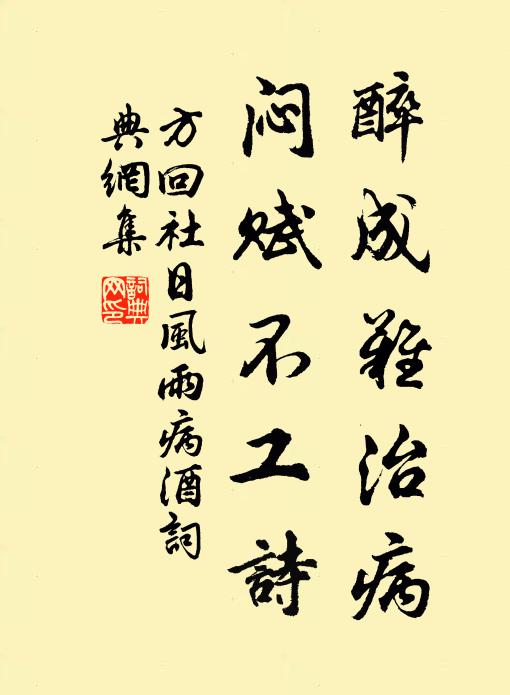 醉成難治病
闷赋不工詩
方回社日風雨病酒詞
典網集
詞典
网印